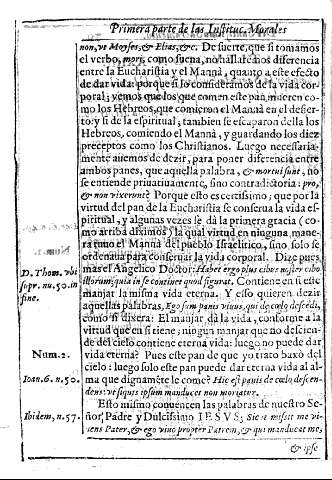 Primera parte de las Instituc. Morales
non, vt Moyses, & Elias, &c. De suerte, que si tomamos
el verbo, mori, como suena, no hallaremos diferencia
entre la Eucharistia y el Mannà, quanto a este efecto
de dar vida: porque si lo consideramos de la vida cor-
poral; vemos que los que comen este pan mueren co-
mo los Hebreos, que comieron el Mannà en el desier-
to y si de la espiritual, tambien se escaparon della los
Hebreos, comiendo el Mannà, y guardando los diez
preceptos como los Christianos. Luego necessaria-
mente auemos de dezir, para poner diferencia entre
ambos panes, que aquella palabra, & mortui sunt, no
se entiende priuatiuamente, sino contradictoria: pro,
& non vixerunt: Porque esto es certissimo; que por la
virtud del pan de la Eucharistia se conserua la vida es-
piritual, y algunas vezes se dà la primera gracia (co-
mo arriba diximos) la qual virtud en ninguna mane-
ra tuuo el Mannà del pueblo Israelitico, sino solo se
ordenaua para conseruar la vida corporal. Dize pues
mas el Angelico Doctor: Habet ergo plus cibus noster cibo
D. Thom. vbi
illorum, quia in se continet quod figurat. Contiene en si este
sopr. nu. 50. in
manjar la misma vida eterna. Y esso quieren dezir
fine.
aquellas palabras, Ego sum panis viuus, qui de cœlo descēdi,
como si dixera: El manjar dà la vida, conforme a la
virtud que en si tiene; ningun manjar que no descien-
de del cielo contiene eterna vida: luego no puede dar
Num. 2.
vida eterna? Pues este pan de que yo trato baxò del
cielo: luego solo este pan puede dar eterna vida al al-
Ioan. 6. n. 50.
ma que dignamēte le come? Hic est panis de cœlo descen-
dens: vt si quis ipsum manducet non moriatur.
Esto mismo conuencen las palabras de nuestro Se-
Ibidem, n. 57.
ñor, Padre y Dulcissimo IESVS; Sicut misit me vi-
uens Pater, & ego viuo propter Patrem, & qui manducat me,
& ipse